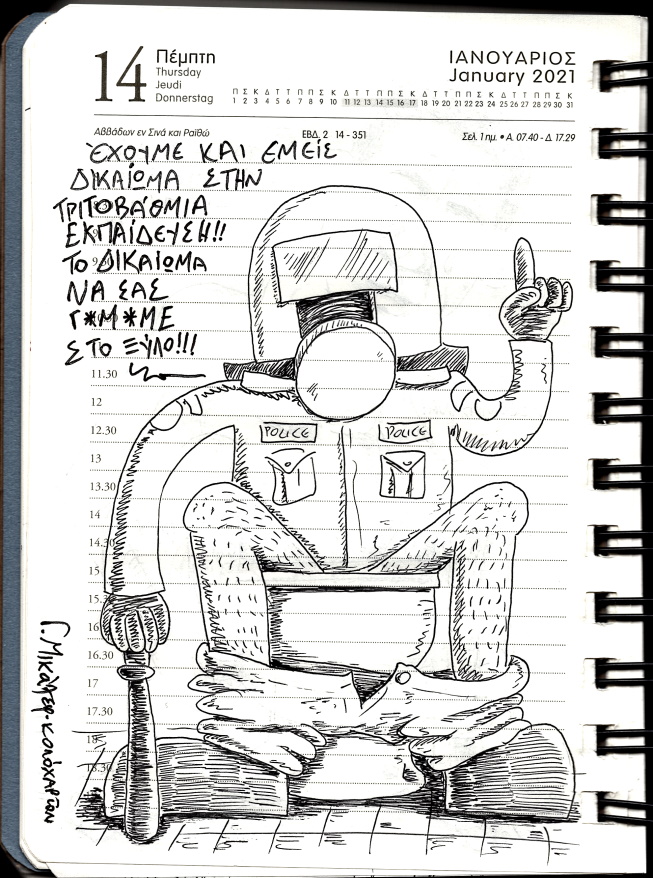 14 Πέμπτη
Thursday
Jeudi
Donnerstag
ΙΑΝΟΥΑΡΙΟΣ
January 2021
Π Σ Κ Δ Τ Τ Π Π Σ Κ Δ Τ Τ Π Π Σ Κ Δ Τ Τ Π Π Σ Κ Δ Τ Τ Π Π Σ Κ
1 2 3 4 5 6 7 8 9 10 11 12 13 14 15 16 17 18 19 20 21 22 23 24 25 26 27 28 29 30 31
Αββάδων εν Σινά και Ραϊθώ ΕΒΔ. 2 14 - 351 Σελ. 1 ημ. • Α. 07.40 - Δ 17.29
ΕΧΟΥΜΕ ΚΑΙ ΕΜΕΙΣ
ΔΙΚΑΙΩΜΑ ΣΤΗΝ
ΤΡΙΤΟΒΑΘΜΙΑ
ΕΚΠΑΙΔΕΥΣΗ!!
ΤΟ ΔΙΚΑΙΩΜΑ
ΝΑ ΣΑΣ
Γ*Μ*ΜΕ
ΣΤΟ ΞΥΛΟ!!!
11.30
12
12.30
POLICE POLICE
13
13.30
14
14.30
15
15.30
16
16.30
17
17.30
18
18.30